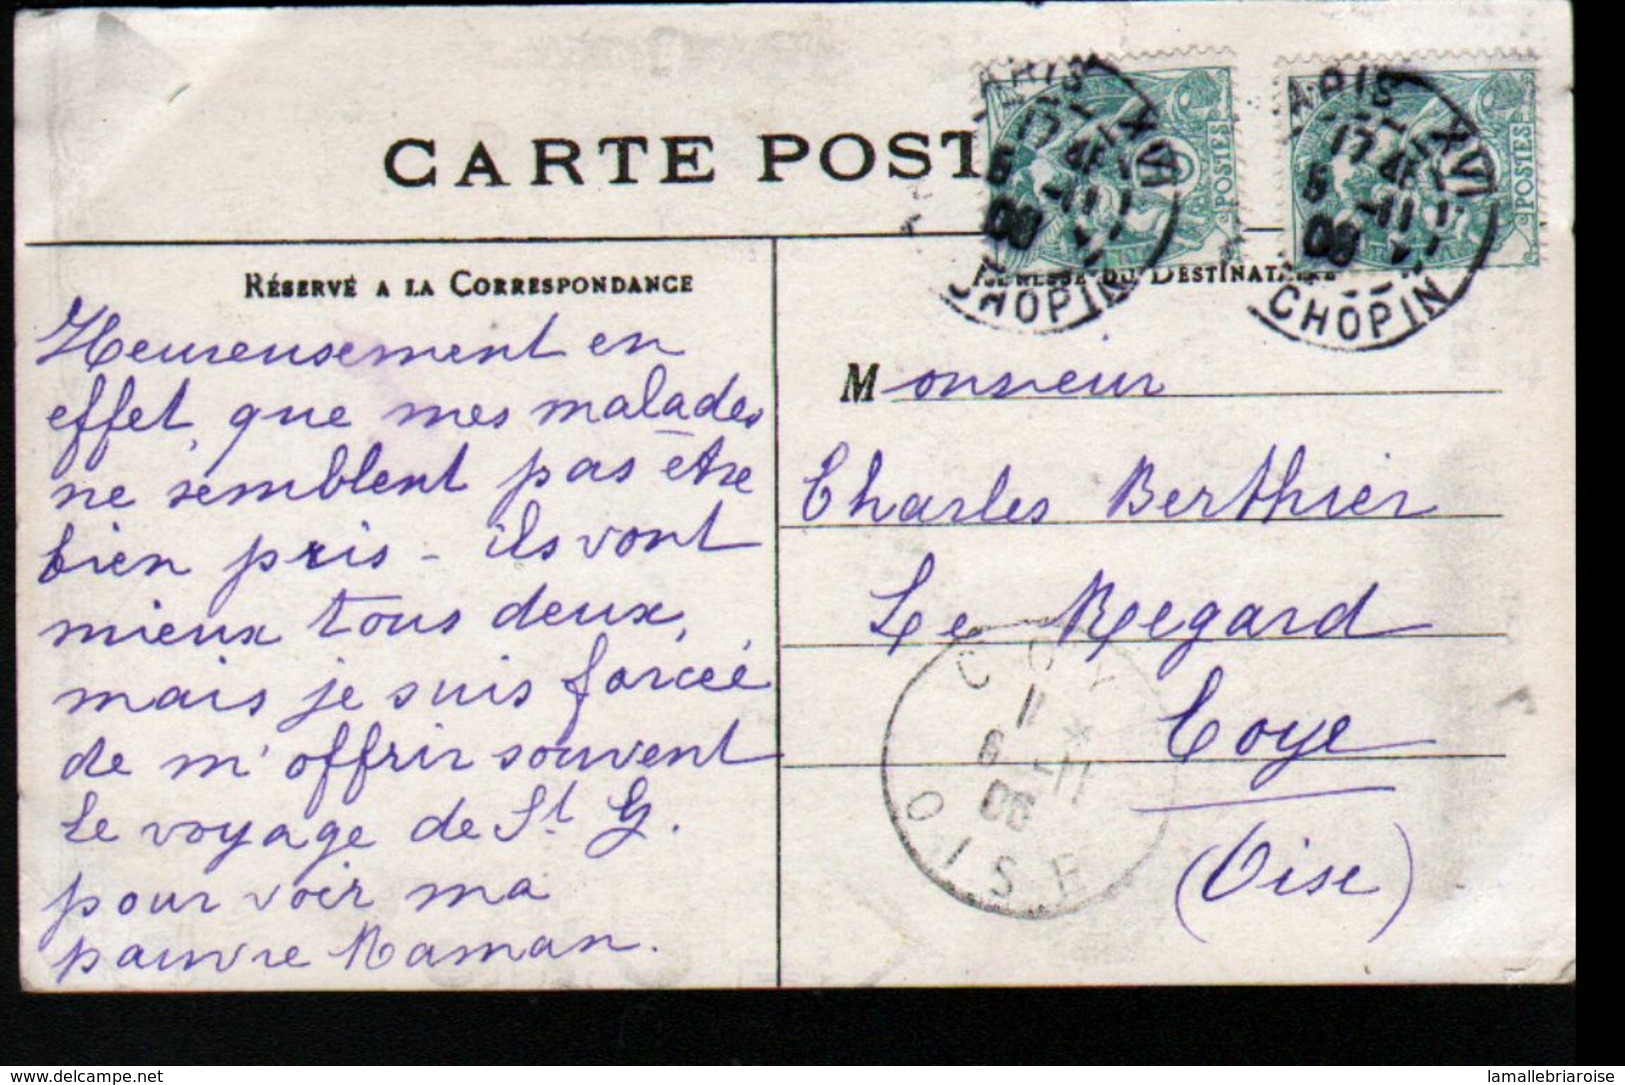 CARTE POST
RÉSERVÉ A LA CORRESPONDANCE
Heureusement en
effet, que mes malades
ne semblent pas être
bien pris - ils vont
mieux tous deux,
mais je suis forcée
de m'offrir souvent
le voyage de St G.
pour voir ma
pauvre Maman.
DU DESTINATAIRE
Monsieur
Charles Berthier
Le Regard
Coye
(Oise)
ARIS XVI
17
5 -11
06
CHOPIN
POSTES
ARIS XVI
17
5 -11
06
CHOPIN
POSTES
COY
11 *
6 -11
06
OISE
www.delcampe.net
lamallebriaroise